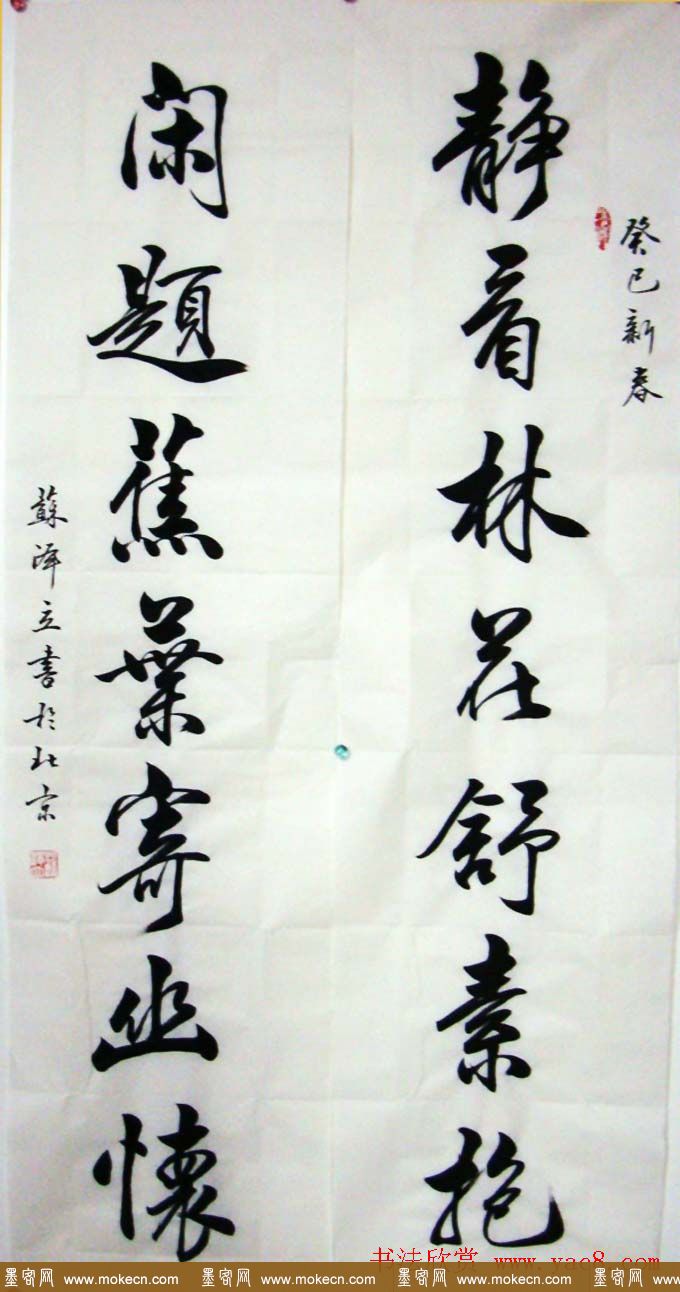 癸巳新春
静看林花舒素抱
閑題蕉葉寄幽懷
蘇泽立書於北京
书法欣赏 www.yac8.com
墨客网 www.mokecn.com 墨客网 www.mokecn.com 墨客网 www.mokecn.com